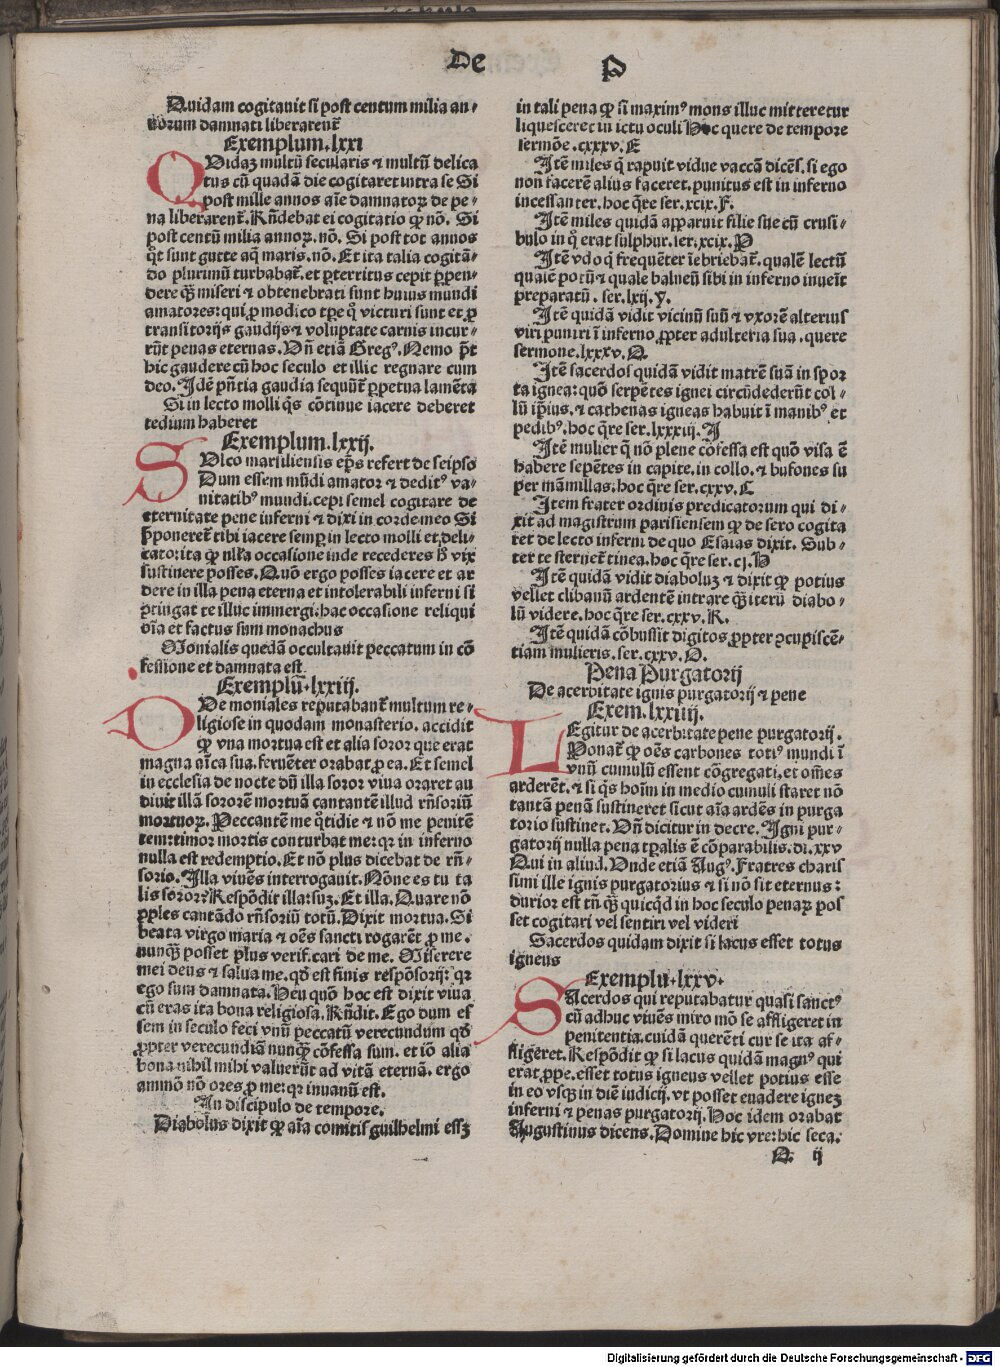 De P
Quidam cogitauit si post centum milia an⸗
norum damnati liberarent̄
Exemplum.lxxi
QVidaꝫ multū secularis ⁊ multū delica
tus cū quadā die cogitaret intra se Si
post mille annos aīe damnatoꝝ de pe⸗
na liberarent̄. Rn̄debat ei cogitatio ꝙ nō. Si
post centū milia annoꝝ. nō. Si post tot annos
qͦt sunt gutte aq̄ maris. nō. Et ita talia cogitā⸗
do plurimū turbabat̄. et ꝑterritus cepit ꝑpen⸗
dere qꝫ̄ miseri ⁊ obtenebrati sunt huius mundi
amatores: qui ꝓ modico tꝑe qͦ victuri sunt et ꝓ
transitorijs gaudijs ⁊ voluptate carnis incur⸗
rūt penas eternas. Vn̄ etiā Gregꝰ. Nemo p̄t
hic gaudere cū hoc seculo et illic regnare cum
deo. Idē pn̄tia gaudia sequūt̄ ꝑpetua lamēta
Si in lecto molli q̄s cōtinue iacere deberet
tedium haberet
Exemplum.lxxij.
SVlco marsiliensis ep̄s refert de seipso
Dum essem mūdi amator ⁊ deditꝰ va⸗
nitatibꝰ mundi. cepi semel cogitare de
eternitate pene inferni ⁊ dixi in corde meo Si
p̄poneret̄ tibi iacere semꝑ in lecto molli et deli⸗
cato: ita ꝙ nlĺa occasione inde recederes b̄ vix
sustinere posses. Quō ergo posses iacere et ar
dere in illa pena eterna et intolerabili inferni si
ↄtingat te illuc immergi. hac occasione reliqui
oīa et factus sum monachus
Monialis quedā occultauit peccatum in cō
fessione et damnata est.
Exemplū.lxxiij.
DVe moniales reputabant̄ multum re⸗
ligiose in quodam monasterio. accidit
ꝙ vna mortua est et alia soror que erat
magna aīca sua. feruēter orabat ꝓ ea. Et semel
in ecclesia de nocte dū illa soror viua oraret au
diuit illā sororē mortuā cantantē illud rn̄soriū
mortuoꝝ. Peccantē me qͦtidie ⁊ nō me penitē
tem: timor mortis conturbat me: qꝛ in inferno
nulla est redemptio. Et nō plus dicebat de rn̄⸗
sorio. Illa viuēs interrogauit. Nōne es tu ta
lis soror? Respōdit illa: suꝫ. Et illa. Quare nō
ꝓples cantādo rn̄soriū totū. Dixit mortua. Si
beata virgo maria ⁊ oēs sancti rogarēt ꝓ me.
nunqꝫ̄ posset plus verificari de me. Miserere
mei deus ⁊ salua me. qd̄ est finis respōsorij: qꝛ
ego sum damnata. Heu quō hoc est dixit viua
cū eras ita bona religiosa. Rn̄dit. Ego dum es
sem in seculo feci vnū peccatū verecundum qd̄
ꝓpter verecundiā nunqꝫ̄ cōfessa sum. et iō alia
bona nihil mihi valuerūt ad vitā eternā. ergo
ammō nō ores ꝓ me: qꝛ inuanū est.
In discipulo de tempore.
Diabolus dixit ꝙ aīa comitis guilhelmi essꝫ
in tali pena ꝙ si maximꝰ mons illuc mitteretur
liquesceret in ictu oculi Hoc quere de tempore
sermōe.cxxxv.E
Itē miles q̄ rapuit vidue vaccā dicēs. si ego
non facerē alius faceret. punitus est in inferno
incessanter. hoc q̄re ser.xcix.F.
Itē miles quidā apparuit filie sue cū crusi⸗
bulo in qͦ erat sulphur. ser.xcix.P
Itē vdo q̄ frequēter īebriebat̄. qualē lectū
qualē potū ⁊ quale balneū sibi in inferno inueīt
preparatū. ser.lxij.y.
Itē quidā vidit vicinū suū ⁊ vxorē alterius
viri puniri ī inferno ꝓpter adulteria sua. quere
sermone.lxxxv.Q
Itē sacerdos quidā vidit matrē suā in spor
ta ignea: quō serpētes ignei circūdederūt col⸗
lū ip̄ius. ⁊ cathenas igneas habuit ī manibꝰ et
pedibꝰ. hoc q̄re ser.lxxxiij.I
Itē mulier q̄ nō plene cōfessa est quō visa ē
habere sepētes in capite. in collo. ⁊ bufones su
per māmillas. hoc q̄re ser.cxxv.C
Item frater ordinis predicatorum qui di⸗
xit ad magistrum parisiensem ꝙ de sero cogita
ret de lecto inferni de quo Esaias dixit. Sub⸗
ter te sternet̄ tinea. hoc q̄re ser.cj.H
Itē quidā vidit diaboluꝫ ⁊ dixit ꝙ potius
vellet clibanū ardentē intrare qꝫ̄ iterū diabo⸗
lū videre. hoc q̄re ser.cxxv.K.
Itē quidā cōbussit digitos ꝓpter ↄcupiscē⸗
tiam mulieris. ser.cxxv.O.
Pena Purgatorij
De acerbitate ignis purgatorij ⁊ pene
Exem.lxxiiij.
LEgitur de acerbitate pene purgatorij.
Ponat̄ ꝙ oēs carbones totiꝰ mundi ī
vnū cumulū essent cōgregati. et omēs
arderēt. ⁊ si q̄s hoīm in medio cumuli staret nō
tantā penā sustineret sicut aīa ardēs in purga
torio sustinet. Vn̄ dicitur in decre. Igni pur⸗
gatorij nulla pena tp̄alis ē cōparabilis. di.xxv
Qui in aliud. Vnde etiā Augꝰ. Fratres charis
simi ille ignis purgatorius ⁊ si nō sit eternus:
durior est tn̄ qꝫ̄ quicqd̄ in hoc seculo penaꝝ pos
set cogitari vel sentiri vel videri
Sacerdos quidam dixit si lacus esset totus
igneus
Exemplū.lxxv.
SAcerdos qui reputabatur quasi sanctꝰ
cū adhuc viuēs miro mō se affligeret in
penitentia. cuidā querēti cur se ita af⸗
fligeret. Respōdit ꝙ si lacus quidā magnꝰ qui
erat ꝓpe. esset totus igneus vellet potius esse
in eo vsqꝫ in diē iudicij. vt posset euadere igneꝫ
inferni ⁊ penas purgatorij. Hoc idem orabat
Augustinus dicens. Domine hic vre: hic seca.
Q ij
Digitalisierung gefördert durch die Deutsche Forschungsgemeinschaft - DFG